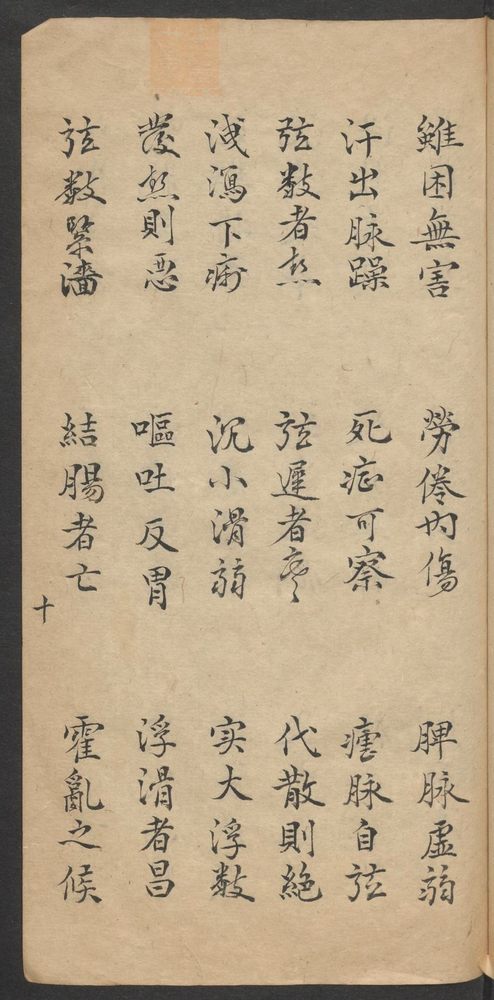 雖困無害 勞倦內傷 脾脉虛弱
汗出脉躁 死症可察 瘧脉自弦
弦数者热 弦遲者寒 代散則絶
洩瀉下痢 沉小滑弱 实大浮数
發热則惡 嘔吐反胃 浮滑者昌
弦数緊濇 結腸者亡 霍亂之候
十